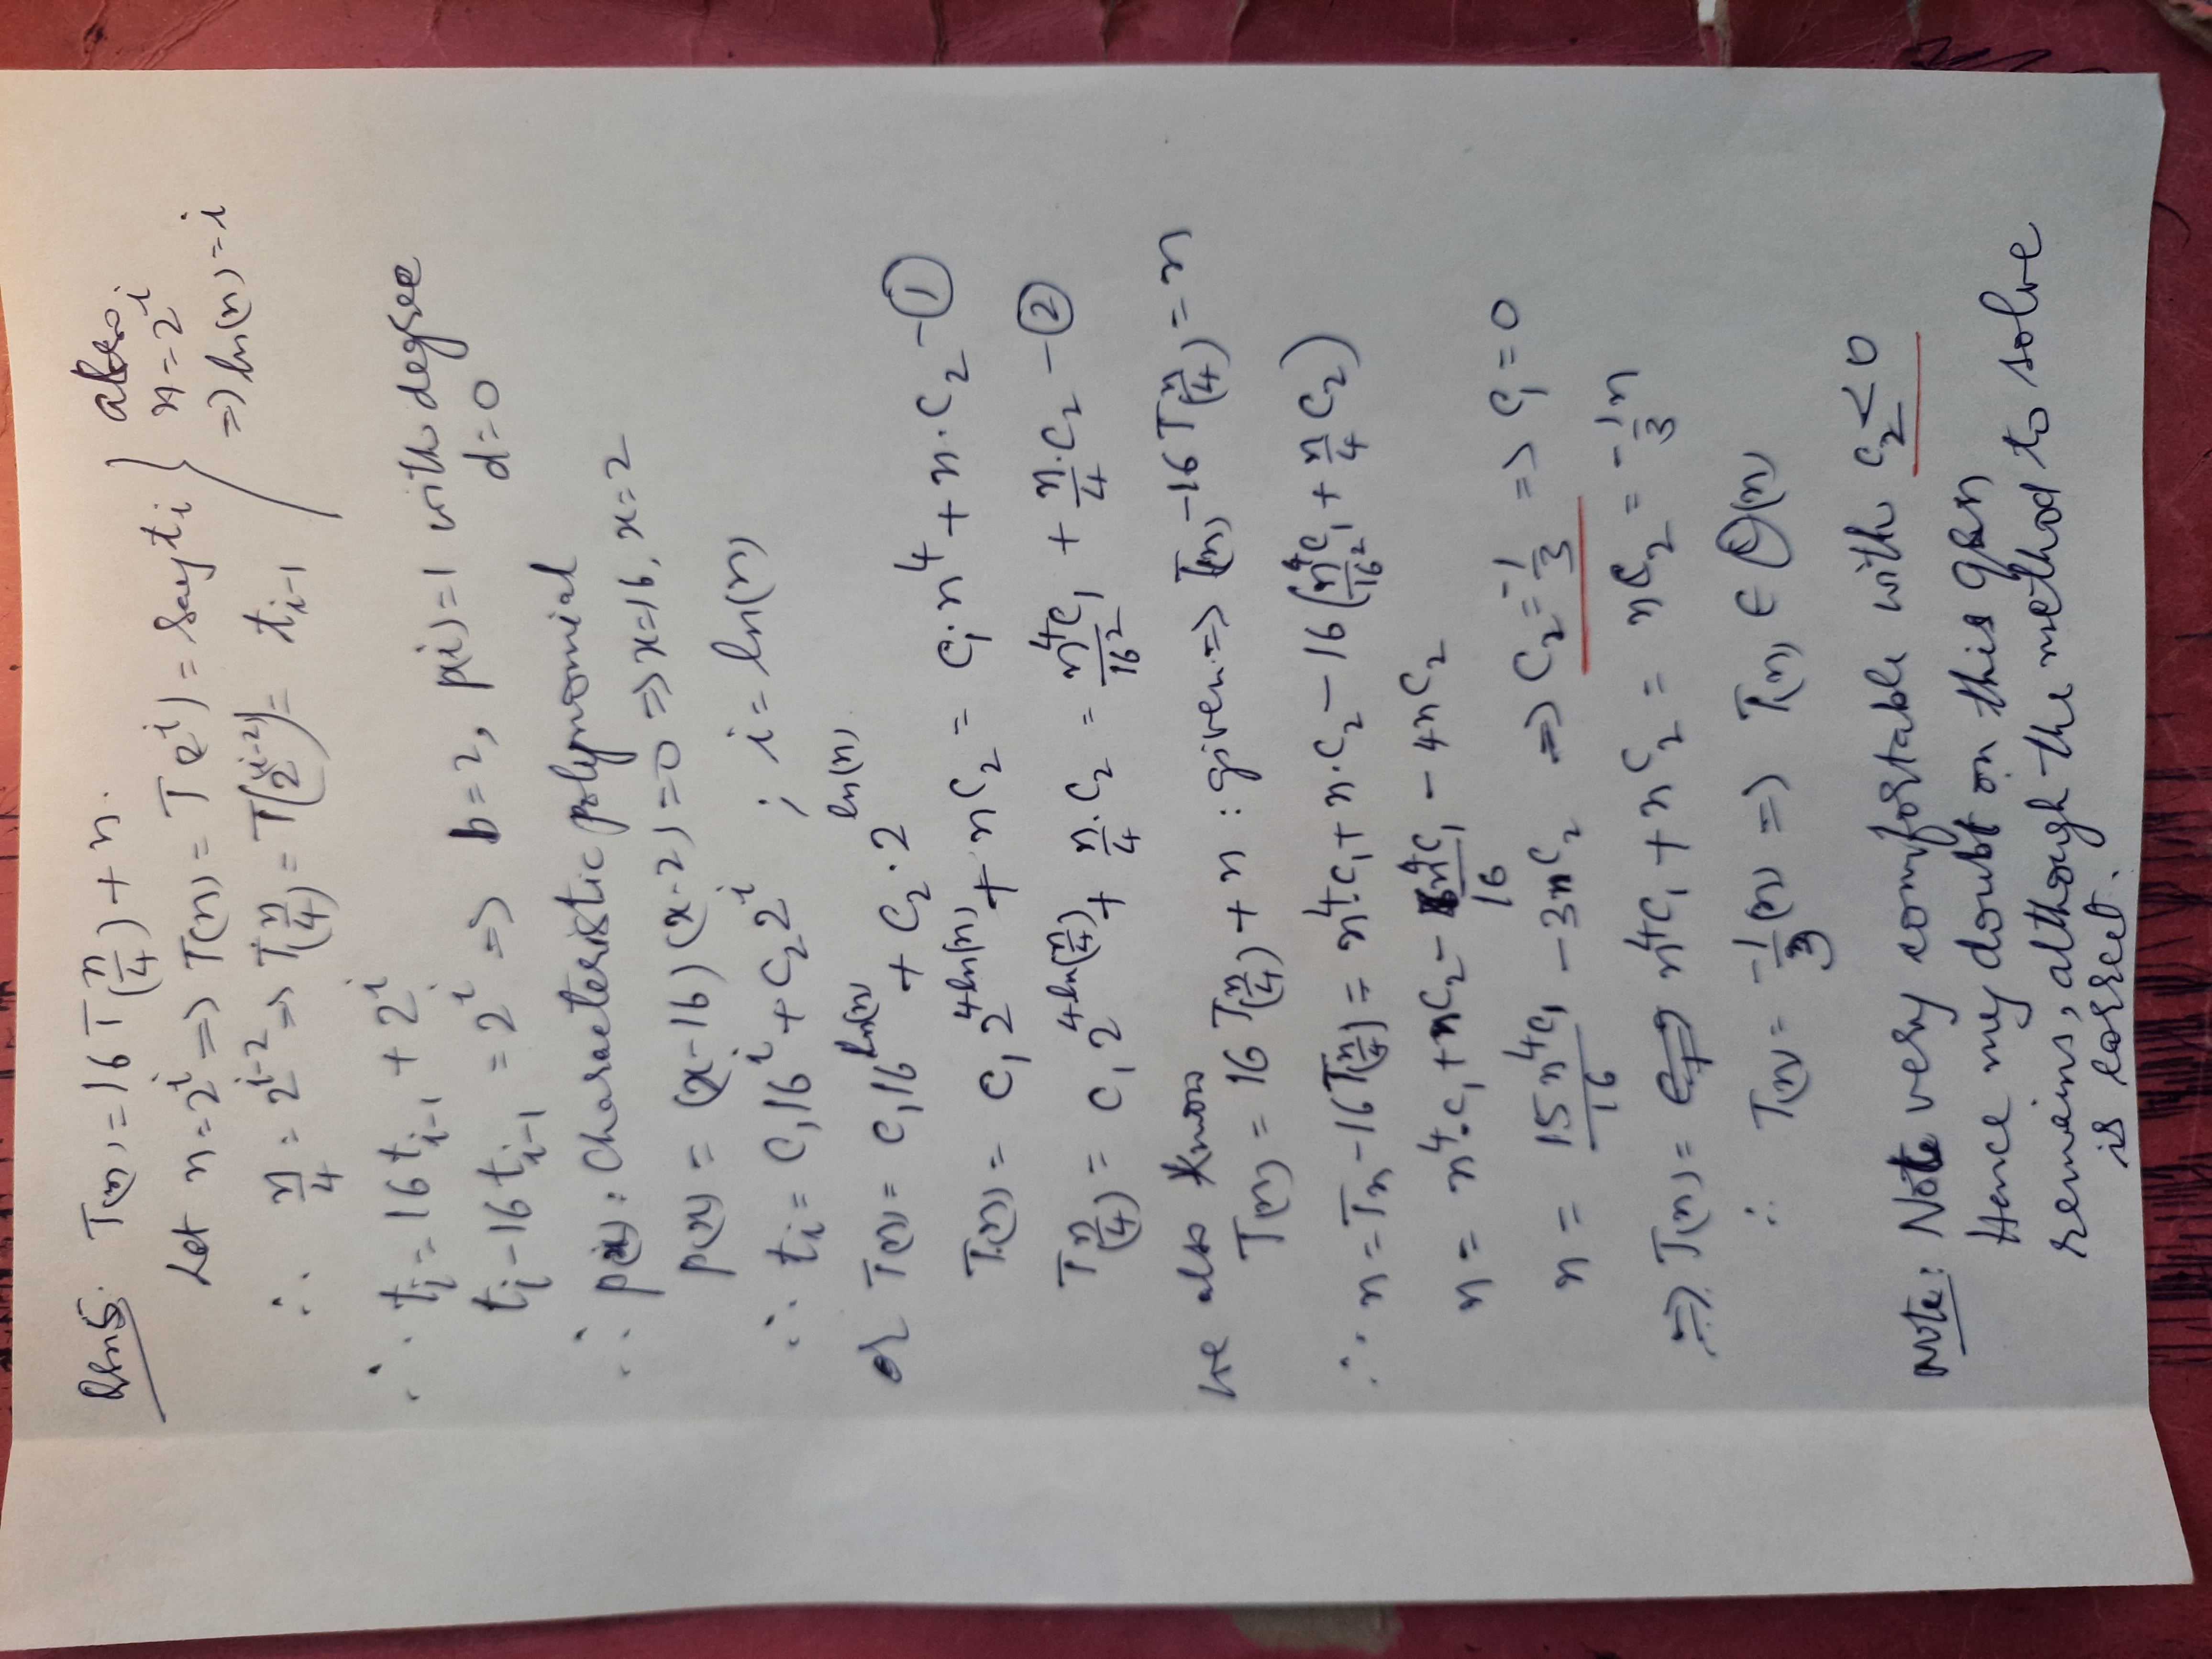 Qsn5. T(n) = 16 T(n/4) + n.
Let n = 2^i => T(n) = T(2^i) = say t_i
also,
n = 2^i
=> ln(n) = i
∴ n/4 = 2^{i-2} => T(n/4) = T(2^{i-2}) = t_{i-1}
∴ t_i = 16 t_{i-1} + 2^i
t_i - 16 t_{i-1} = 2^i => b = 2, p(i) = 1 with degree
d = 0
∴ p(x): Characteristic polynomial
p(x) = (x-16)(x-2) = 0 => x=16, x=2
∴ t_i = C_1 16^i + C_2 2^i ; i = ln(n)
or T(n) = C_1 16^{ln(n)} + C_2 · 2^{ln(n)}
T(n) = C_1 2^{4 ln(n)} + n C_2 = C_1 · n^4 + n · C_2 - ①
T(n/4) = C_1 2^{4 ln(n/4)} + n/4 · C_2 = n^4 C_1 / 16^2 + n/4 · C_2 - ②
we also know
T(n) = 16 T(n/4) + n : given => T(n) - 16 T(n/4) = n
∴ n = Tn - 16 T(n/4) = n^4 · C_1 + n · C_2 - 16 (n^4 C_1 / 16^2 + n/4 C_2)
n = n^4 · C_1 + n C_2 - n^4 C_1 / 16 - 4n C_2
n = 15 n^4 C_1 / 16 - 3n C_2 => C_2 = -1/3 => C_1 = 0
=> T(n) = n^4 C_1 + n C_2 = n C_2 = -1/3 n
∴ T(n) = -1/3 (n) => T(n) ∈ Θ(n)
Note: Not very comfortable with C_2 < 0
Hence my doubt on this qsn
remains, although the method to solve
is correct.